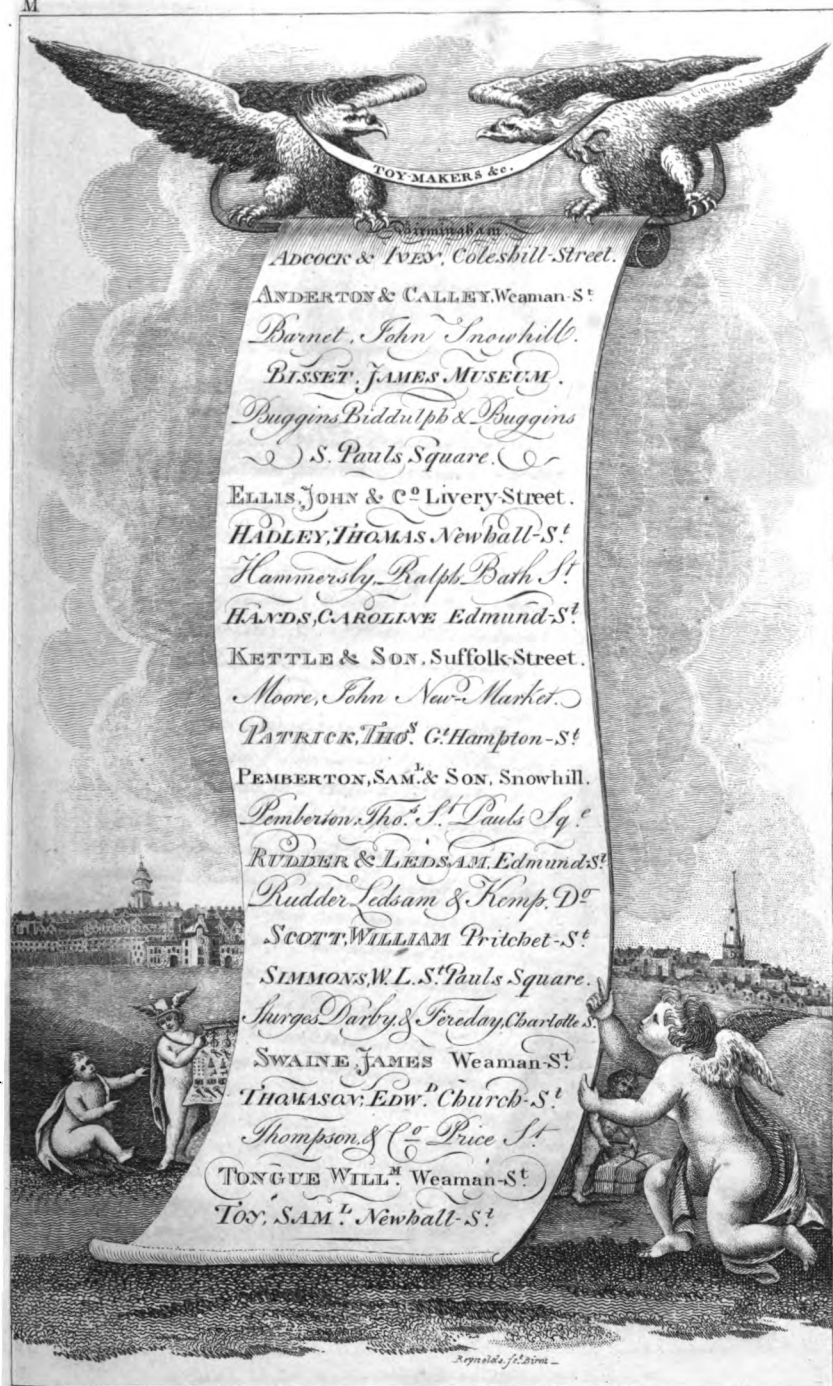 M
TOY-MAKERS &c.
Birmingham.
ADCOCK & IVEY, Coleshill-Street.
ANDERTON & CALLEY, Weaman-St.
Barnet, John Snowhill.
BISSET, JAMES MUSEUM.
Buggins Biddulph & Buggins
S. Pauls Square.
ELLIS, JOHN & Co. Livery-Street.
HADLEY, THOMAS Newhall-St.
Hammersly, Ralph Bath St.
HANDS, CAROLINE Edmund-St.
KETTLE & SON, Suffolk-Street.
Moore, John New-Market.
PATRICK, THOs. Gt. Hampton-St.
PEMBERTON, SAML. & SON, Snowhill.
Pemberton, Thos. St. Pauls Sqe.
RUDDER & LEDSAM, Edmund-St.
Rudder, Ledsam & Kemp, Do.
SCOTT, WILLIAM Pritchet-St.
SIMMONS, W. L. St. Pauls Square.
Sturges Darby, & Fereday, Charlotte S.
SWAINE, JAMES Weaman-St.
THOMASON, EDWD. Church-St.
Thompson, & Co. Price St.
TONGUE WILLM. Weaman-St.
TOY, SAML. Newhall-St.
Reynolds, fct. Birm